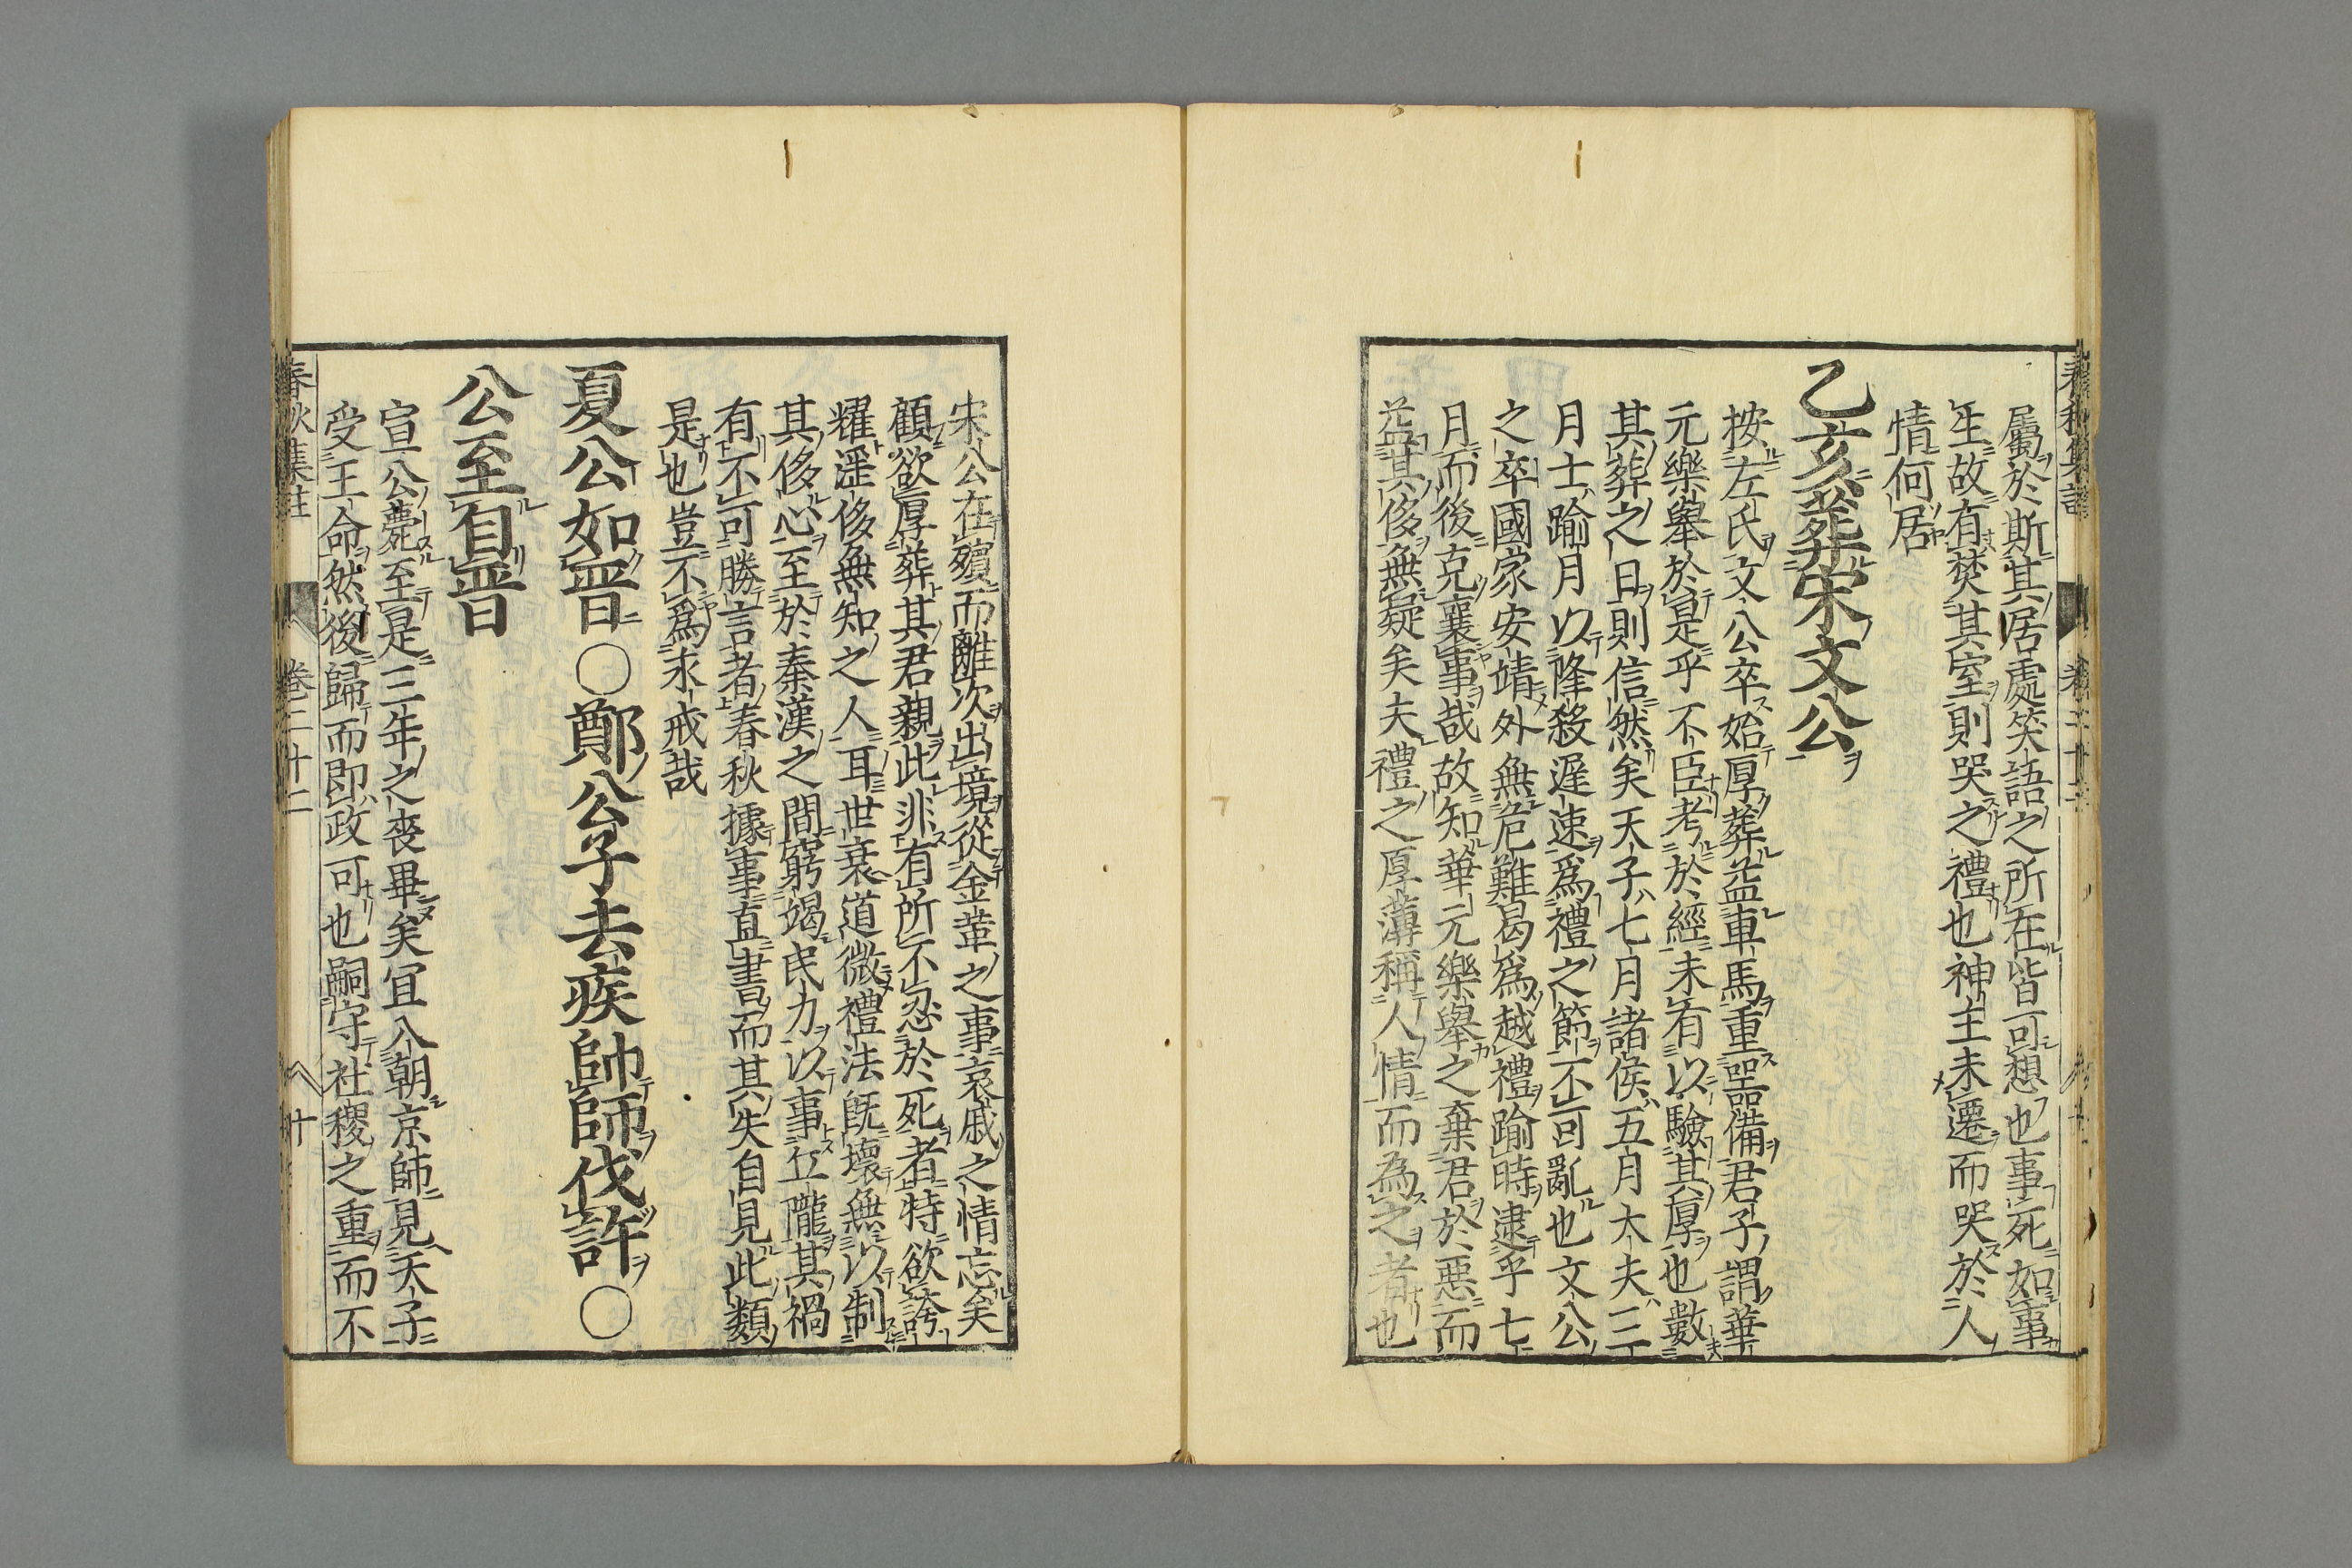 屬於斯其居處笑語之所在皆可想也事死如事
生故有焚其室則哭之禮也神主未遷而哭於人
情何居
乙亥葬宋文公
按左氏文公卒始厚葬益車馬重噐備君子謂華
元樂舉於是乎不臣考於經未有以驗其厚也數
其葬之日則信然矣天子七月諸侯五月大夫三
月士踰月以隆殺遲速爲禮之節不可亂也文公
之卒國家安靖外無危難曷爲越禮踰時逮乎七
月而後克襄事哉故知華元樂舉之棄君於惡而
益其侈無疑矣夫禮之厚薄稱人情而為之者也
宋公在殯而離次出境從金革之事哀戚之情忘矣
顧欲厚葬其君親此非有所不忍於死者特欲誇
耀滛侈無知之人耳世衰道微禮法既壞無以制
其侈心至於秦漢之間窮竭民力以事丘隴其禍
有不可勝言者春秋據事直書而其失自見此類
是也豈不爲永戒哉
夏公如晋○鄭公子去疾帥師伐許○
公至自晋
宣公薨至是三年之喪畢矣宜入朝京師見天子
受王命然後歸而即政可也嗣守社稷之重而不
春秋集註 卷二十二 十